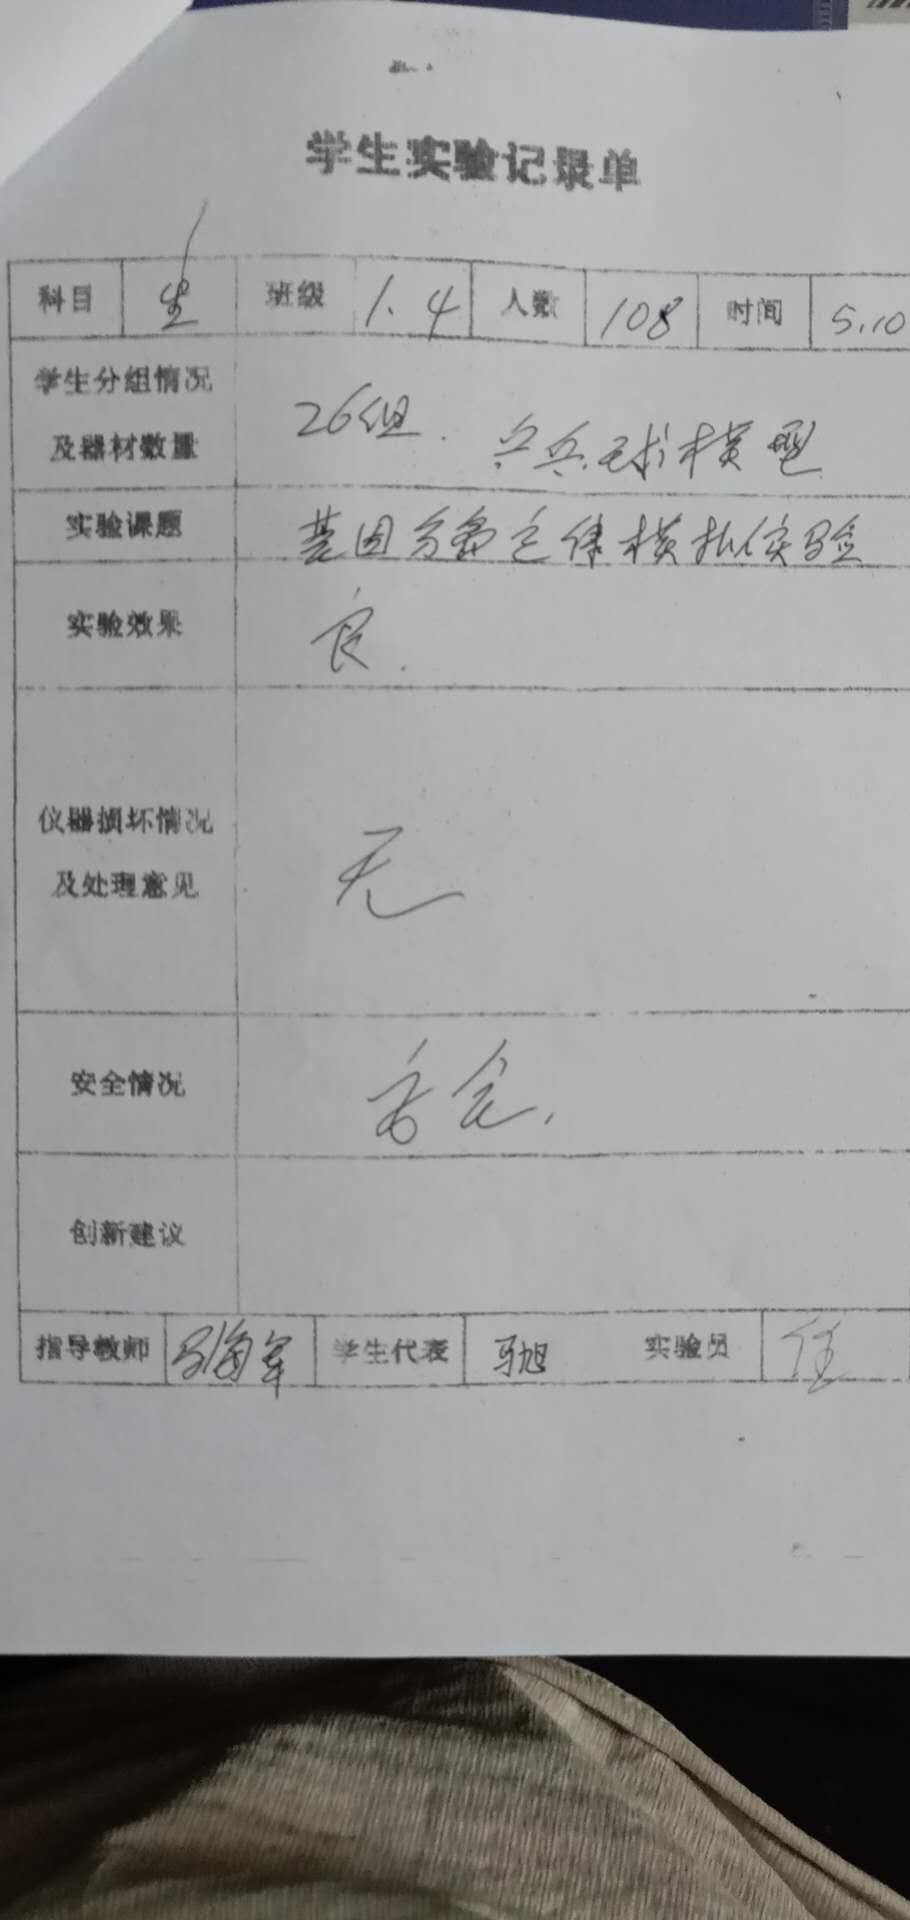 学生实验记录单
科目 生 班级 1.4 人数 108 时间 5.10
学生分组情况
及器材数量
26组. 乒乓球模型
实验课题 基因分离定律模拟实验
实验效果 良.
仪器损坏情况
及处理意见
无
安全情况 安全.
创新建议
指导教师 海军 学生代表 马旭 实验员 任